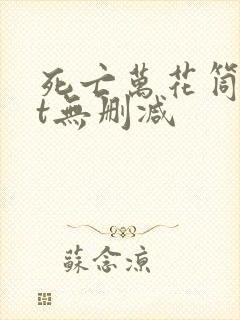 死亡萬花筒
t無刪減
蘇念涼